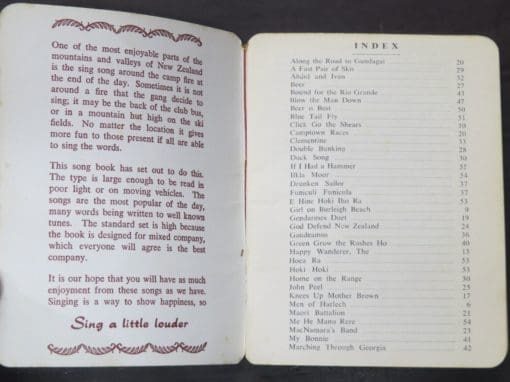 One of the most enjoyable parts of the
mountains and valleys of New Zealand
is the sing song around the camp fire at
the end of the day. Sometimes it is not
around a fire that the gang decide to
sing; it may be the back of the club bus,
or in a mountain hut high on the ski
fields. No matter the location it gives
more fun to those present if all are able
to sing the words.
This song book has set out to do this.
The type is large enough to be read in
poor light or on moving vehicles. The
songs are the most popular of the day,
many words being written to well known
tunes. The standard set is high because
the book is designed for mixed company,
which everyone will agree is the best
company.
It is our hope that you will have as much
enjoyment from these songs as we have.
Singing is a way to show happiness, so
Sing a little louder
INDEX
Along the Road to Gundagai 20
A Fast Pair of Skis 29
Abdul and Ivan 32
Beer 27
Bound for the Rio Grande 43
Blow the Man Down 47
Beer is Best 50
Blue Tail Fly 51
Click Go the Shears 30
Camptown Races 20
Clementine 33
Double Bunking 28
Duck Song 30
If I Had a Hammer 52
Ilkla Moor 54
Drunken Sailor 37
Funiculi Funicula 37
E Hine Hoki Iho Ra 53
Girl on Burleigh Beach 9
Gendarmes Duet 19
God Defend New Zealand 24
Gaudeamus 36
Green Grow the Rushes Ho 40
Happy Wanderer, The 13
Hoea Ra 53
Hoki Hoki 53
Home on the Range 30
John Peel 25
Knees Up Mother Brown 17
Men of Harlech 6
Maori Battalion 21
Me He Manu Rere 54
MacNamara's Band 23
My Bonnie 41
Marching Through Georgia 42